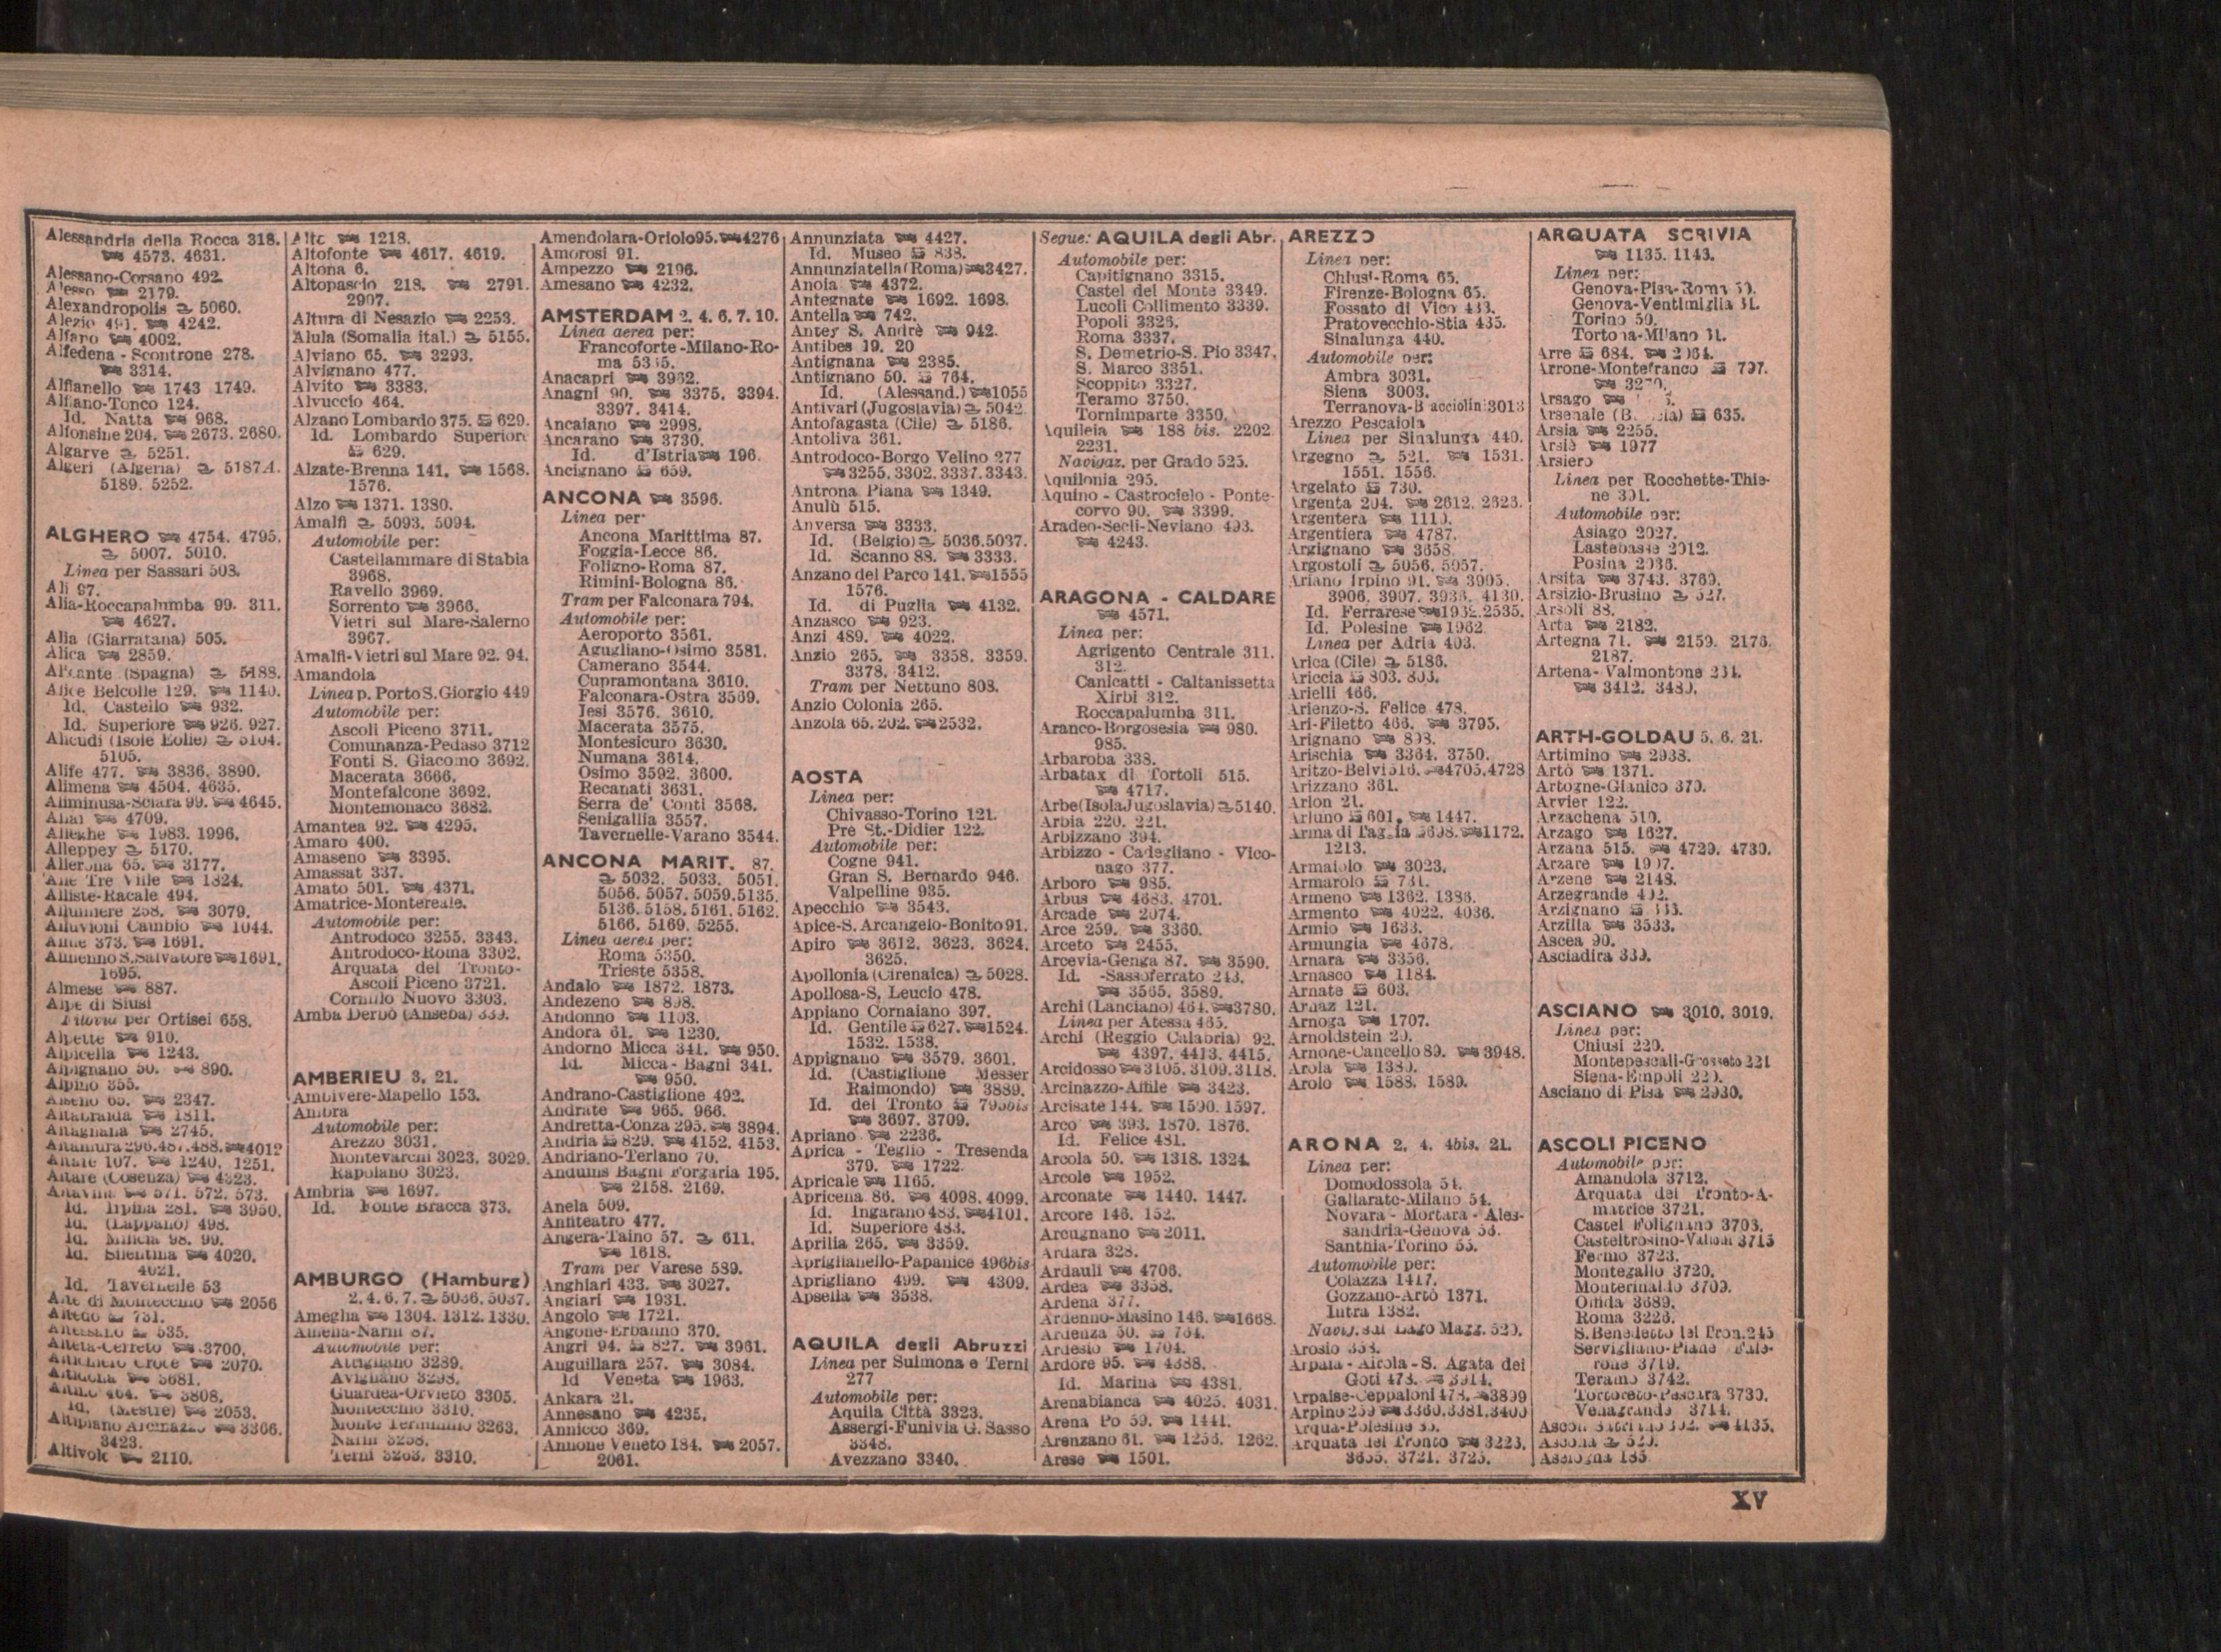 Alessandria della Rocca 318.
4573. 4631.
Alessano-Corsano 492.
Alesso 2179.
Alexandropolis 5060.
Alezio 491. 4242.
Alfano 4002.
Alfedena - Scontrone 278.
3314.
Alfianello 1743 1749.
Alfiano-Tonco 124.
Id. Natta 968.
Alfonsine 204. 2673. 2680.
Algarve 5251.
Algeri (Algeria) 5187A.
5189. 5252.
ALGHERO 4754. 4795.
5007. 5010.
Linea per Sassari 503.
Alì 97.
Alia-Roccapalumba 99. 311.
4627.
Alia (Giarratana) 505.
Alica 2859.
Alicante (Spagna) 5188.
Alice Belcolle 129. 1140.
Id. Castello 932.
Id. Superiore 926. 927.
Alicudi (Isole Eolie) 5104.
5105.
Alife 477. 3836. 3890.
Alimena 4504. 4635.
Aliminusa-Sciara 99. 4645.
4709.
Alleghe 1983. 1996.
Alleppey 5170.
Allerona 65. 3177.
Alle Tre Ville 1824.
Alliste-Racale 494.
Allumiere 258. 3079.
Alluvioni Cambiò 1044.
Alme 373. 1691.
Almenno S. Salvatore 1691.
1695.
Almese 887.
Alpe di Siusi
Filovia per Ortisei 658.
Alpette 910.
Alpicella 1243.
Alpignano 50. 890.
Alpino 355.
Alseno 65. 2347.
Altabraida 1811.
Altagnana 2745.
Altamura 296.487.488. 4012
Altare 107. 1240. 1251.
Altare (Cosenza) 4323.
Altavilla 571. 572. 573.
Id. Irpina 281. 3950.
Id. (Lappano) 498.
Id. Milicia 98. 99.
Id. Silentina 4020.
4021.
Id. Tavernelle 53
Alte di Montecchio 2056
Altedo 731.
Altessano 535.
Alteta-Cerreto 3700.
Altichiero Croce 2070.
Altidona 3681.
Altino 464. 3808.
Id. (Mestre) 2053.
Altipiano Arcinazzo 3366.
3423.
Altivole 2110.
Alto 1218.
Altofonte 4617. 4619.
Altona 6.
Altopascio 218. 2791.
2907.
Altura di Nesazio 2253.
Alula (Somalia ital.) 5155.
Alviano 65. 3293.
Alvignano 477.
Alvito 3383.
Alvuccio 464.
Alzano Lombardo 375. 629.
Id. Lombardo Superiore
629.
Alzate-Brenna 141. 1568.
1576.
Alzo 1371. 1380.
Amalfi 5093. 5094.
Automobile per:
Castellammare di Stabia
3968.
Ravello 3969.
Sorrento 3966.
Vietri sul Mare-Salerno
3967.
Amalfi-Vietri sul Mare 92. 94.
Amandola
Linea p. Porto S. Giorgio 449
Automobile per:
Ascoli Piceno 3711.
Comunanza-Pedaso 3712
Fonti S. Giacomo 3692.
Macerata 3666.
Montefalcone 3692.
Montemonaco 3682.
Amantea 92. 4295.
Amaro 400.
Amaseno 3395.
Amassat 337.
Amato 501. 4371.
Amatrice-Montereale.
Automobile per:
Antrodoco 3255. 3343.
Antrodoco-Roma 3302.
Arquata del Tronto-
Ascoli Piceno 3721.
Cornulo Nuovo 3303.
Amba Derbò (Anseba) 339.
AMBERIEU 3. 21.
Ambivere-Mapello 153.
Ambra
Automobile per:
Arezzo 3031.
Montevarchi 3023. 3029.
Rapolano 3023.
Ambria 1697.
Id. Fonte Bracca 373.
AMBURGO (Hamburg)
2. 4. 6. 7. 5036. 5037.
Ameglia 1304. 1312. 1330.
Amelia-Narni 87.
Automobile per:
Attigliano 3289.
Avigliano 3293.
Guardea-Orvieto 3305.
Montecchio 3310.
Monte Terminillo 3263.
Narni 3258.
Terni 3263. 3310.
Amendolara-Oriolo 95. 4276
Amorosi 91.
Ampezzo 2196.
Amesano 4232.
AMSTERDAM 2. 4. 6. 7. 10.
Linea aerea per:
Francoforte-Milano-Ro-
ma 5335.
Anacapri 3962.
Anagni 90. 3375. 3394.
3397. 3414.
Ancaiano 2998.
Ancarano 3730.
Id. d'Istria 196.
Ancignano 659.
ANCONA 3596.
Linea per:
Ancona Marittima 87.
Foggia-Lecce 86.
Foligno-Roma 87.
Rimini-Bologna 86.
Tram per Falconara 794.
Automobile per:
Aeroporto 3561.
Agugliano-Osimo 3581.
Camerano 3544.
Cupramontana 3610.
Falconara-Ostra 3569.
Jesi 3576. 3610.
Macerata 3575.
Montesicuro 3630.
Numana 3614.
Osimo 3592. 3600.
Recanati 3631.
Serra de' Conti 3568.
Senigallia 3557.
Tavernelle-Varano 3544.
ANCONA MARIT. 87.
5032. 5033. 5051.
5056. 5057. 5059. 5135.
5136. 5158. 5161. 5162.
5166. 5169. 5255.
Linea aerea per:
Roma 5350.
Trieste 5358.
Andalo 1872. 1873.
Andezeno 898.
Andonno 1103.
Andora 61. 1230.
Andorno Micca 341. 950.
Id. Micca - Bagni 341.
950.
Andrano-Castiglione 492.
Andrate 965. 966.
Andretta-Conza 295. 3894.
Andria 829. 4152. 4153.
Andriano-Terlano 70.
Anduins Bagni Forgaria 195.
2158. 2169.
Anela 509.
Anfiteatro 477.
Angera-Taino 57. 611.
1618.
Tram per Varese 589.
Anghiari 433. 3027.
Angiari 1931.
Angolo 1721.
Angone-Erbanno 370.
Angri 94. 827. 3961.
Anguillara 257. 3084.
Id Veneta 1963.
Ankara 21.
Annesano 4235.
Annicco 369.
Annone Veneto 184. 2057.
2061.
Annunziata 4427.
Id. Museo 838.
Annunziatella (Roma) 3427.
Anoia 4372.
Antegnate 1692. 1698.
Antella 742.
Antey S. Andrè 942.
Antibes 19. 20
Antignana 2385.
Antignano 50. 764.
Id. (Alessand.) 1055
Antivari (Jugoslavia) 5042.
Antofagasta (Cile) 5186.
Antoliva 361.
Antrodoco-Borgo Velino 277
3255. 3302. 3337. 3343.
Antrona Piana 1349.
Anulù 515.
Anversa 3333.
Id. (Belgio) 5036. 5037.
Id. Scanno 88. 3333.
Anzano del Parco 141. 1555
1576.
Id. di Puglia 4132.
Anzasco 923.
Anzi 489. 4022.
Anzio 265. 3358. 3359.
3378. 3412.
Tram per Nettuno 808.
Anzio Colonia 265.
Anzola 65. 202. 2532.
AOSTA
Linea per:
Chivasso-Torino 121.
Pre St.-Didier 122.
Automobile per:
Cogne 941.
Gran S. Bernardo 946.
Valpelline 935.
Apecchio 3543.
Apice-S. Arcangelo-Bonito 91.
Apiro 3612. 3623. 3624.
3625.
Apollonia (Cirenaica) 5028.
Apollosa-S. Leucio 478.
Appiano Cornaiano 397.
Id. Gentile 627. 1524.
1532. 1538.
Appignano 3579. 3601.
Id. (Castiglione Messer
Raimondo) 3889.
Id. del Tronto 795bis
3697. 3709.
Apriano 2236.
Aprica - Teglio - Tresenda
379. 1722.
Apricale 1165.
Apricena 86. 4098. 4099.
Id. Ingarano 483. 4101.
Id. Superiore 483.
Aprilia 265. 3359.
Apriglianello-Papanice 496bis
Aprigliano 499. 4309.
Apsella 3538.
AQUILA degli Abruzzi
Linea per Sulmona e Terni
277
Automobile per:
Aquila Città 3323.
Assergi-Funivia G. Sasso
3348.
Avezzano 3340.
Segue: AQUILA degli Abr.
Automobile per:
Capitignano 3315.
Castel del Monte 3349.
Lucoli Collimento 3339.
Popoli 3326.
Roma 3337.
S. Demetrio-S. Pio 3347.
S. Marco 3351.
Scoppito 3327.
Teramo 3750.
Tornimparte 3350.
Aquileia 188 bis. 2202
2231.
Navigaz. per Grado 525.
Aquilonia 295.
Aquino - Castrocielo - Ponte-
corvo 90. 3399.
Aradeo-Seclì-Neviano 493.
4243.
ARAGONA - CALDARE
4571.
Linea per:
Agrigento Centrale 311.
312.
Canicatti - Caltanissetta
Xirbi 312.
Roccapalumba 311.
Aranco-Borgosesia 980.
985.
Arbaroba 338.
Arbatax di Tortoli 515.
4717.
Arbe (Isola Jugoslavia) 5140.
Arbia 220. 221.
Arbizzano 394.
Arbizzo - Cadegliano - Vico-
nago 377.
Arboro 985.
Arbus 4683. 4701.
Arcade 2074.
Arce 259. 3360.
Arceto 2455.
Arcevia-Genga 87. 3590.
Id. -Sassoferrato 243.
3565. 3589.
Archi (Lanciano) 464. 3780.
Linea per Atessa 465.
Archi (Reggio Calabria) 92.
4397. 4413. 4415.
Arcidosso 3105. 3109. 3118.
Arcinazzo-Affile 3423.
Arcisate 144. 1590. 1597.
Arco 393. 1870. 1876.
Id. Felice 481.
Arcola 50. 1318. 1324.
Arcole 1952.
Arconate 1440. 1447.
Arcore 146. 152.
Arcugnano 2011.
Ardara 328.
Ardauli 4706.
Ardea 3358.
Ardena 377.
Ardenno-Masino 146. 1668.
Ardenza 50. 764.
Ardesio 1704.
Ardore 95. 4388.
Id. Marina 4381.
Arenabianca 4025. 4031.
Arena Po 59. 1441.
Arenzano 61. 1253. 1262.
Arese 1501.
AREZZO
Linea per:
Chiusi-Roma 65.
Firenze-Bologna 65.
Fossato di Vico 433.
Pratovecchio-Stia 435.
Sinalunga 440.
Automobile per:
Ambra 3031.
Siena 3003.
Terranova-Bracciolini 3013
Arezzo Pescaiola
Linea per Sinalunga 440.
Argegno 521. 1531.
1551. 1556.
Argelato 730.
Argenta 204. 2612. 2623.
Argentera 1110.
Argentiera 4787.
Argignano 3658.
Argostoli 5056. 5057.
Ariano Irpino 91. 3905.
3906. 3907. 3936. 4130.
Id. Ferrarese 1962. 2535.
Id. Polesine 1962
Linea per Adria 403.
Arica (Cile) 5186.
Ariccia 803. 805.
Arielli 466.
Arienzo-S. Felice 478.
Ari-Filetto 466. 3795.
Arignano 898.
Arischia 3364. 3750.
Aritzo-Belvì 516. 4705. 4728
Arizzano 361.
Arlon 21.
Arluno 601. 1447.
Arma di Taggia 1172.
1213.
Armaiolo 3023.
Armarolo 731.
Armeno 1362. 1386.
Armento 4022. 4036.
Armio 1633.
Armungia 4678.
Arnara 3356.
Arnasco 1184.
Arnate 603.
Arnaz 121.
Arnoga 1707.
Arnoldstein 20.
Arnone-Cancello 89. 3948.
Arola 1380.
Arolo 1588. 1589.
ARONA 2. 4. 4bis. 21.
Linea per:
Domodossola 54.
Gallarate-Milano 54.
Novara - Mortara - Ales-
sandria-Genova 53.
Santhià-Torino 55.
Automobile per:
Colazza 1417.
Gozzano-Artò 1371.
Intra 1382.
Navig. sul Lago Magg. 520.
Arosio 358.
Arpaia - Airola - S. Agata dei
Goti 478. 3914.
Arpaise-Ceppaloni 478. 3899
Arpino 259 3360. 3381. 3400
Arquà-Polesine 65.
Arquata del Tronto 3223.
3655. 3721. 3725.
ARQUATA SCRIVIA
1135. 1143.
Linea per:
Genova-Pisa-Roma 50.
Genova-Ventimiglia 51.
Torino 50.
Tortona-Milano 51.
Arre 684. 2064.
Arrone-Montefranco 797.
Arsago
Arsenale 635.
Arsia 2255.
Arsiè 1977
Arsiero
Linea per Rocchette-Thie-
ne 391.
Automobile per:
Asiago 2027.
Lastebasse 2012.
Posina 2036.
Arsita 3743. 3769.
Arsizio-Brusino 527.
Arsoli 88.
Arta 2182.
Artegna 71. 2159. 2176.
2187.
Artena-Valmontone 264.
3412. 3480.
ARTH-GOLDAU 5. 6. 21.
Artimino 2938.
Artò 1371.
Artogne-Gianico 370.
Arvier 122.
Arzachena 510.
Arzago 1627.
Arzana 515. 4729. 4730.
Arzare 1907.
Arzene 2148.
Arzegrande 402.
Arzignano 683.
Arzilla 3533.
Ascea 90.
Asciadira 339.
ASCIANO 3010. 3019.
Linea per:
Chiusi 220.
Montepescali-Grosseto 221
Siena-Empoli 220.
Asciano di Pisa 2930.
ASCOLI PICENO
Automobile per:
Amandola 3712.
Arquata del Tronto-A-
matrice 3721.
Castel Folignano 3703.
Casteltrosino-Valledi 3715
Fermo 3723.
Montegallo 3720.
Monterinaldo 3709.
Offida 3689.
Roma 3226.
S. Benedetto del Tron. 245
Servigliano-Piane Fale-
rone 3719.
Teramo 3742.
Tortoreto-Pescara 3730.
Venagrande 3714.
Ascoli Satriano 302. 4135.
Ascona 520.
Aselogna 185
XV